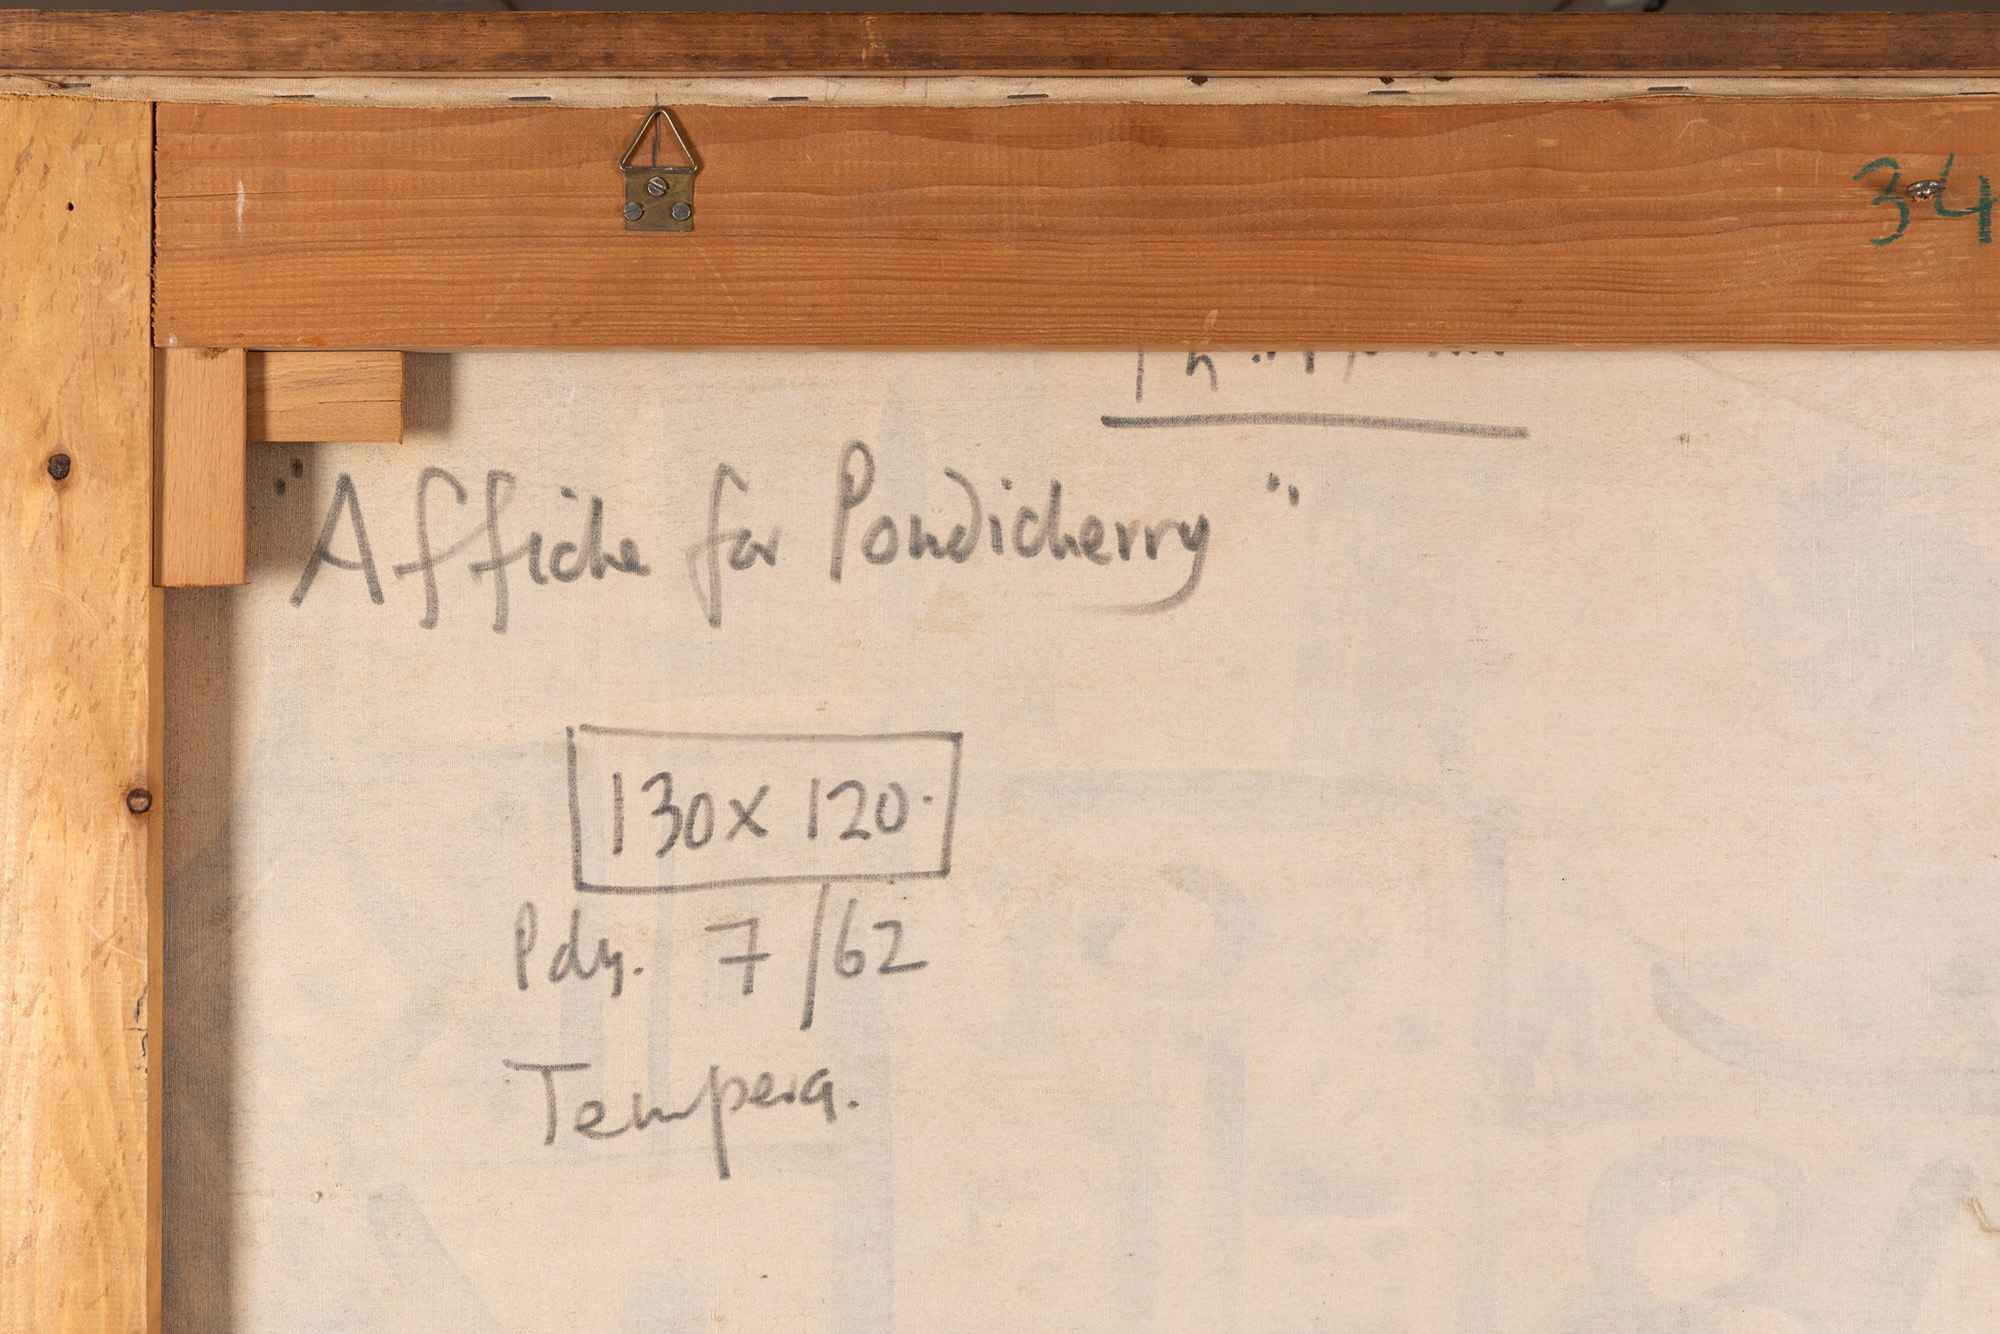 34
"Affiche for Pondicherry"
130 x 120.
Pdy. 7/62
Tempera.